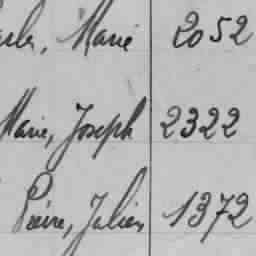 Marie 2052
Marie, Joseph 2322
Pierre, Julien 1372